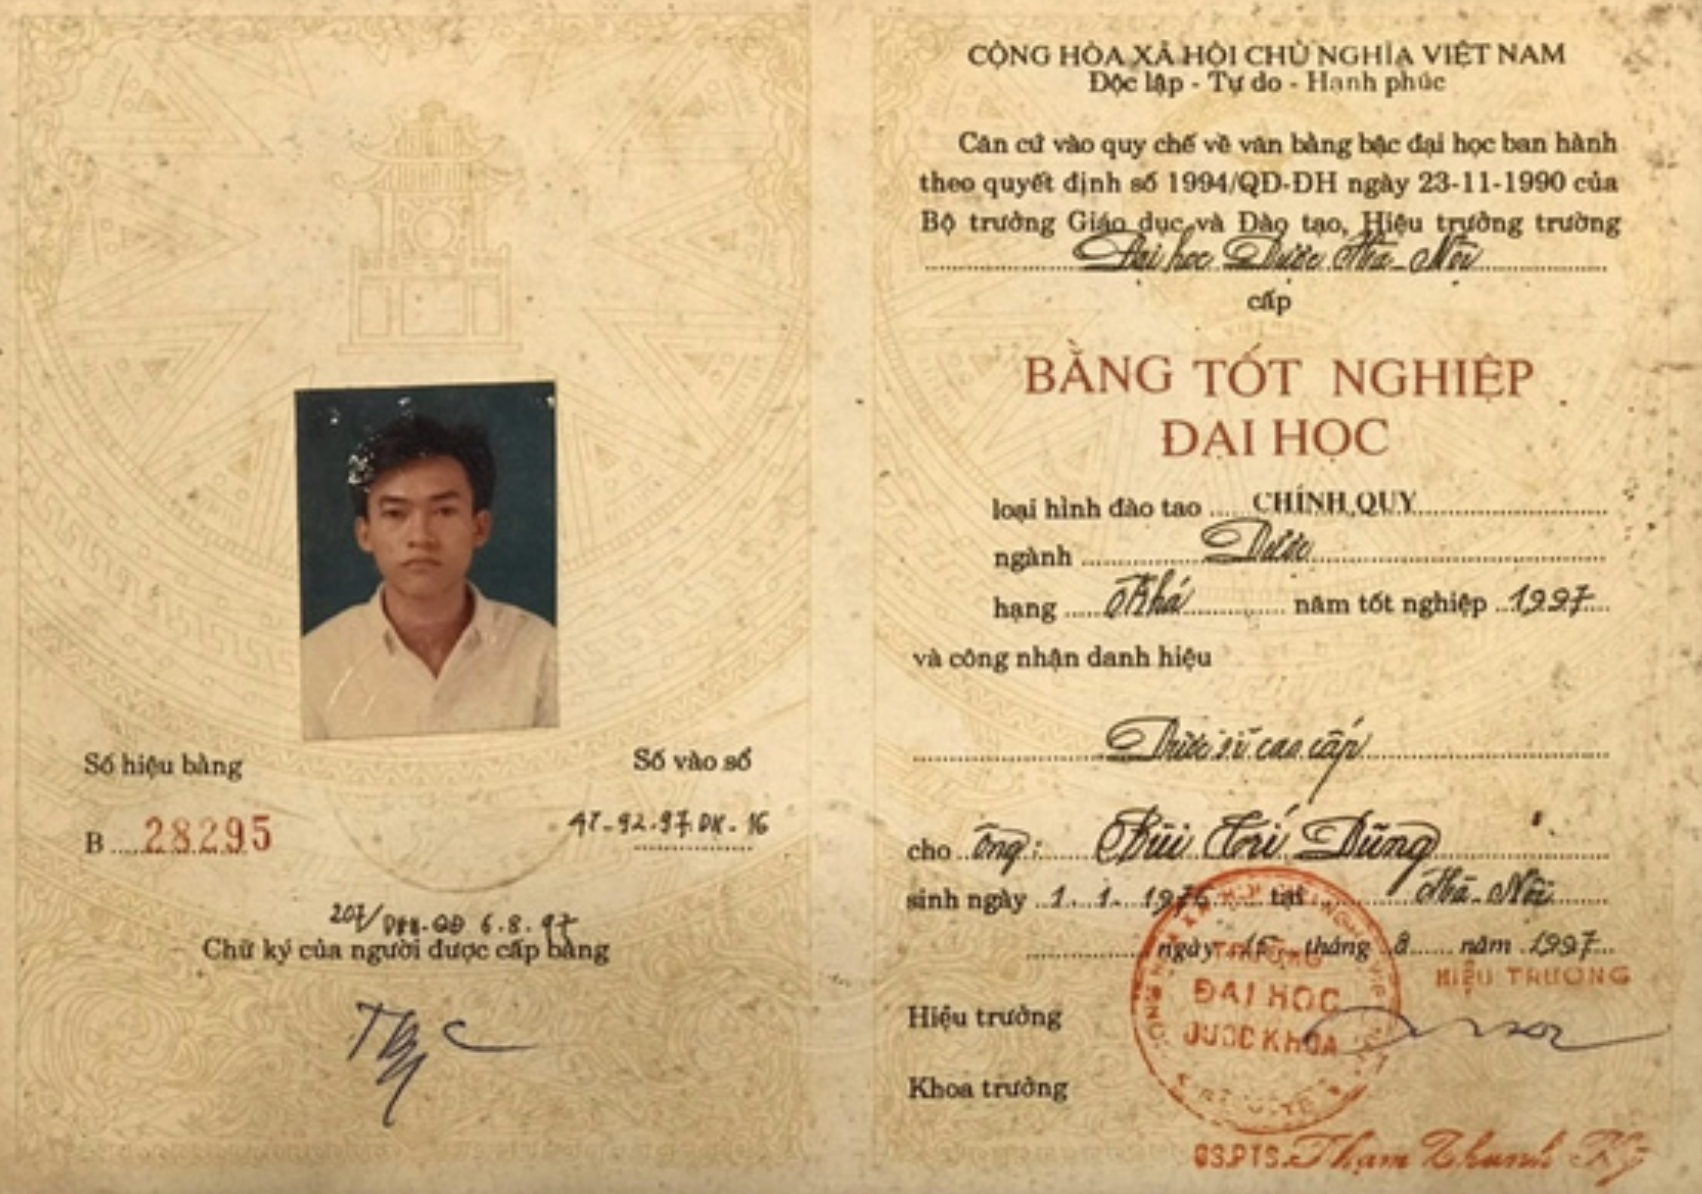 Số hiệu bằng
Số vào sổ
B 28295
207/ĐHD-QĐ 6.8.97
Chữ ký của người được cấp bằng
CỘNG HÒA XÃ HỘI CHỦ NGHĨA VIỆT NAM
Độc lập - Tự do - Hạnh phúc
Căn cứ vào quy chế về văn bằng bậc đại học ban hành
theo quyết định số 1994/QD-ĐH ngày 23-11-1990 của
Bộ trưởng Giáo dục và Đào tạo, Hiệu trưởng trường
Đại học Dược Hà-Nội
cấp
BẰNG TỐT NGHIỆP
ĐẠI HỌC
loại hình đào tạo CHÍNH QUY
ngành Dược
hạng Khá năm tốt nghiệp 1997
và công nhận danh hiệu
Dược sĩ cao cấp
cho Ông: Bùi Trí Dũng
sinh ngày 1.1.1976 tại Hà-Nội
ngày 15 tháng 8 năm 1997
HIỆU TRƯỞNG
TRƯỜNG
ĐẠI HỌC
DƯỢC KHOA
Hiệu trưởng
Khoa trưởng
GS.PTS. Phạm Thanh Kỳ